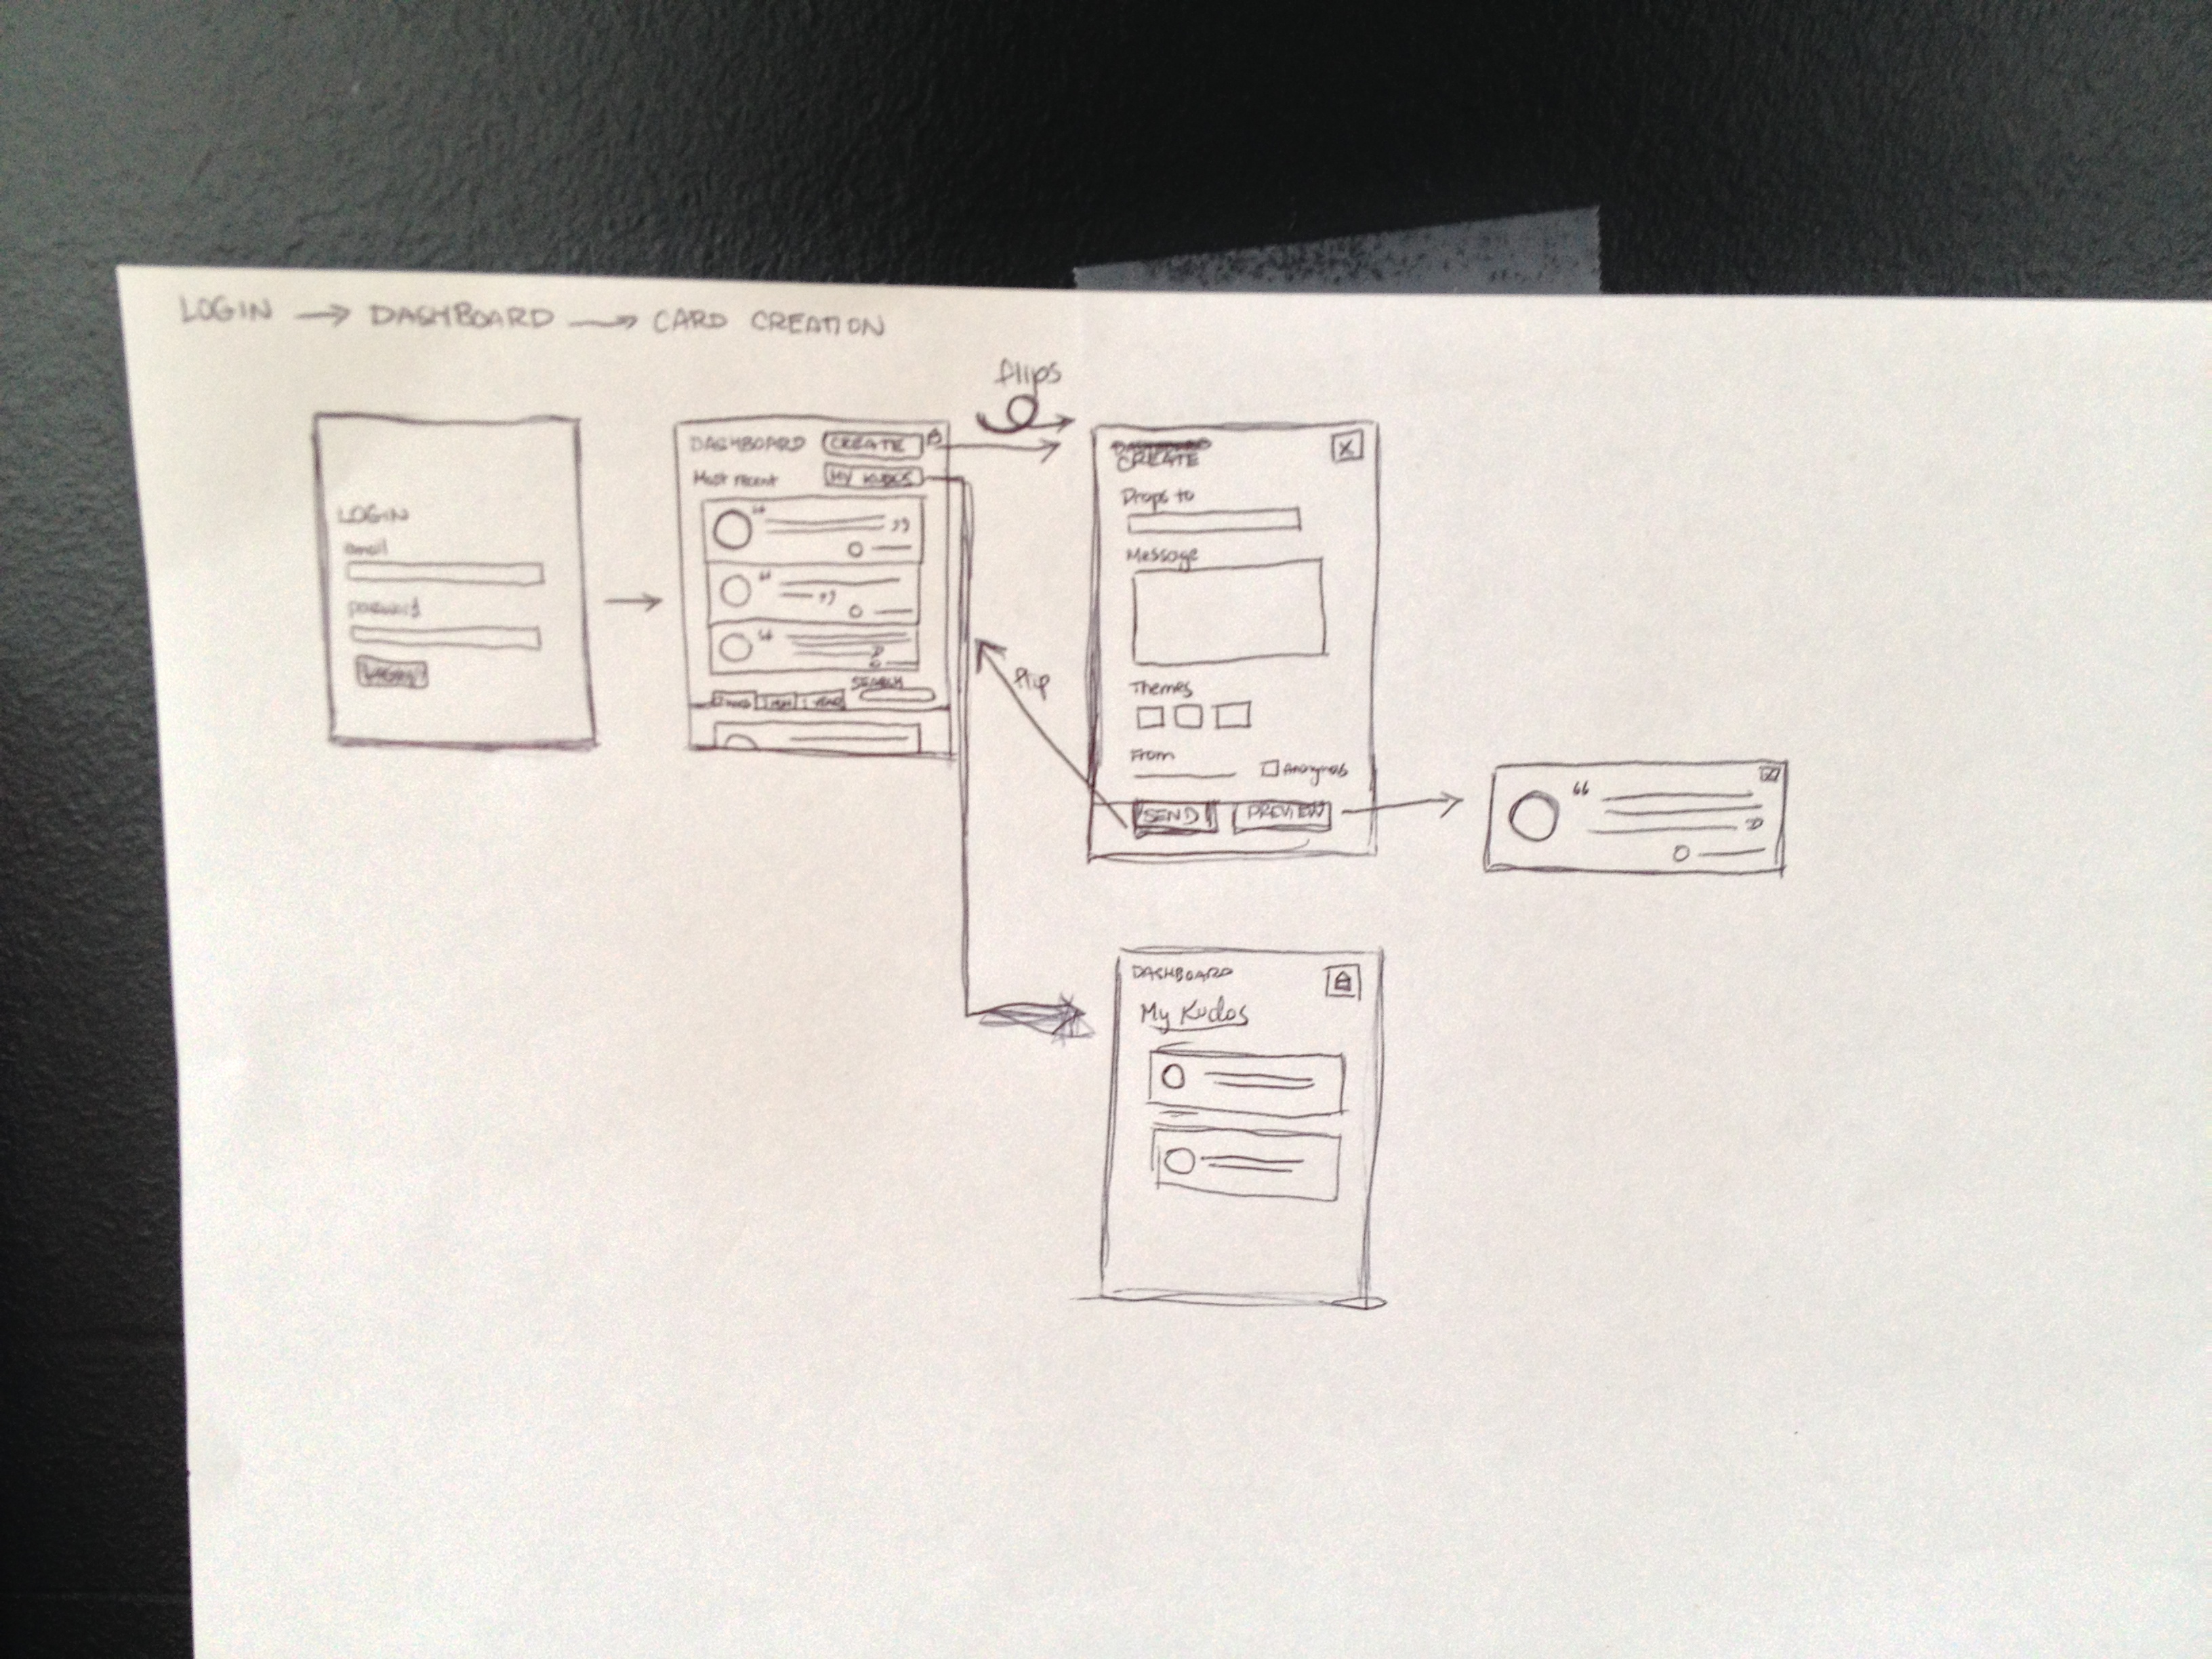 LOGIN → DASHBOARD → CARD CREATION
flips
LOGIN
email
password
LOGIN
DASHBOARD CREATE
Most recent MY KUDOS
SEARCH
YEAR
CREATE X
Drops to
Message
Themes
From Anonymous
SEND PREVIEW
flip
DASHBOARD
My Kudos